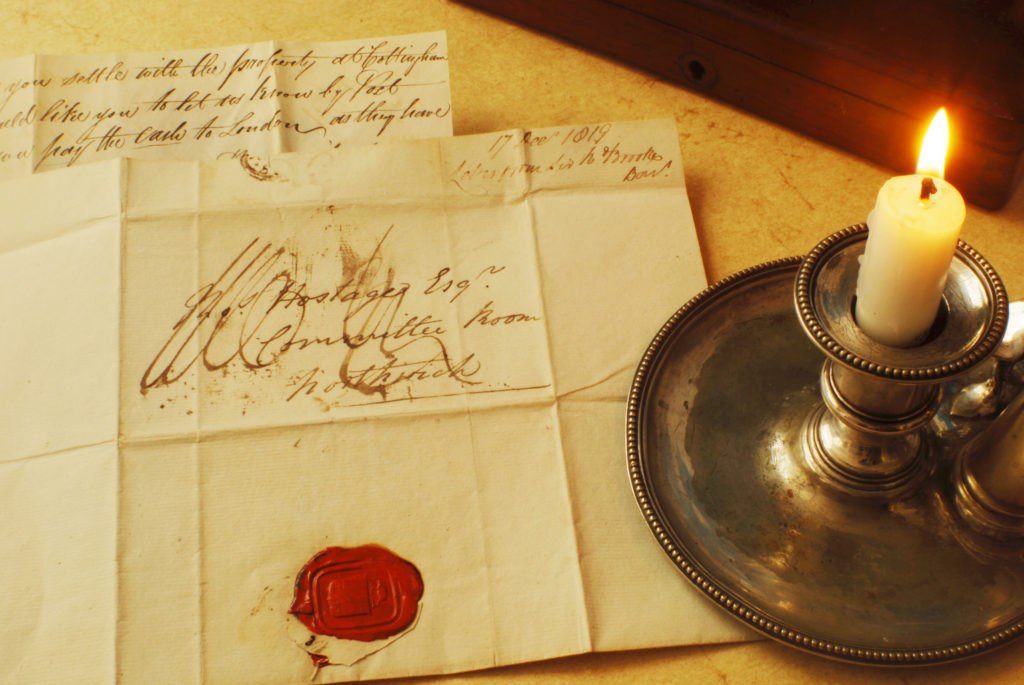 you settle with the property at Cottingham
like you to let us know by Post
pay the Cash to London as they have
17 Decr 1819
from
Hostage Esqr.
Committee Room
Northwich